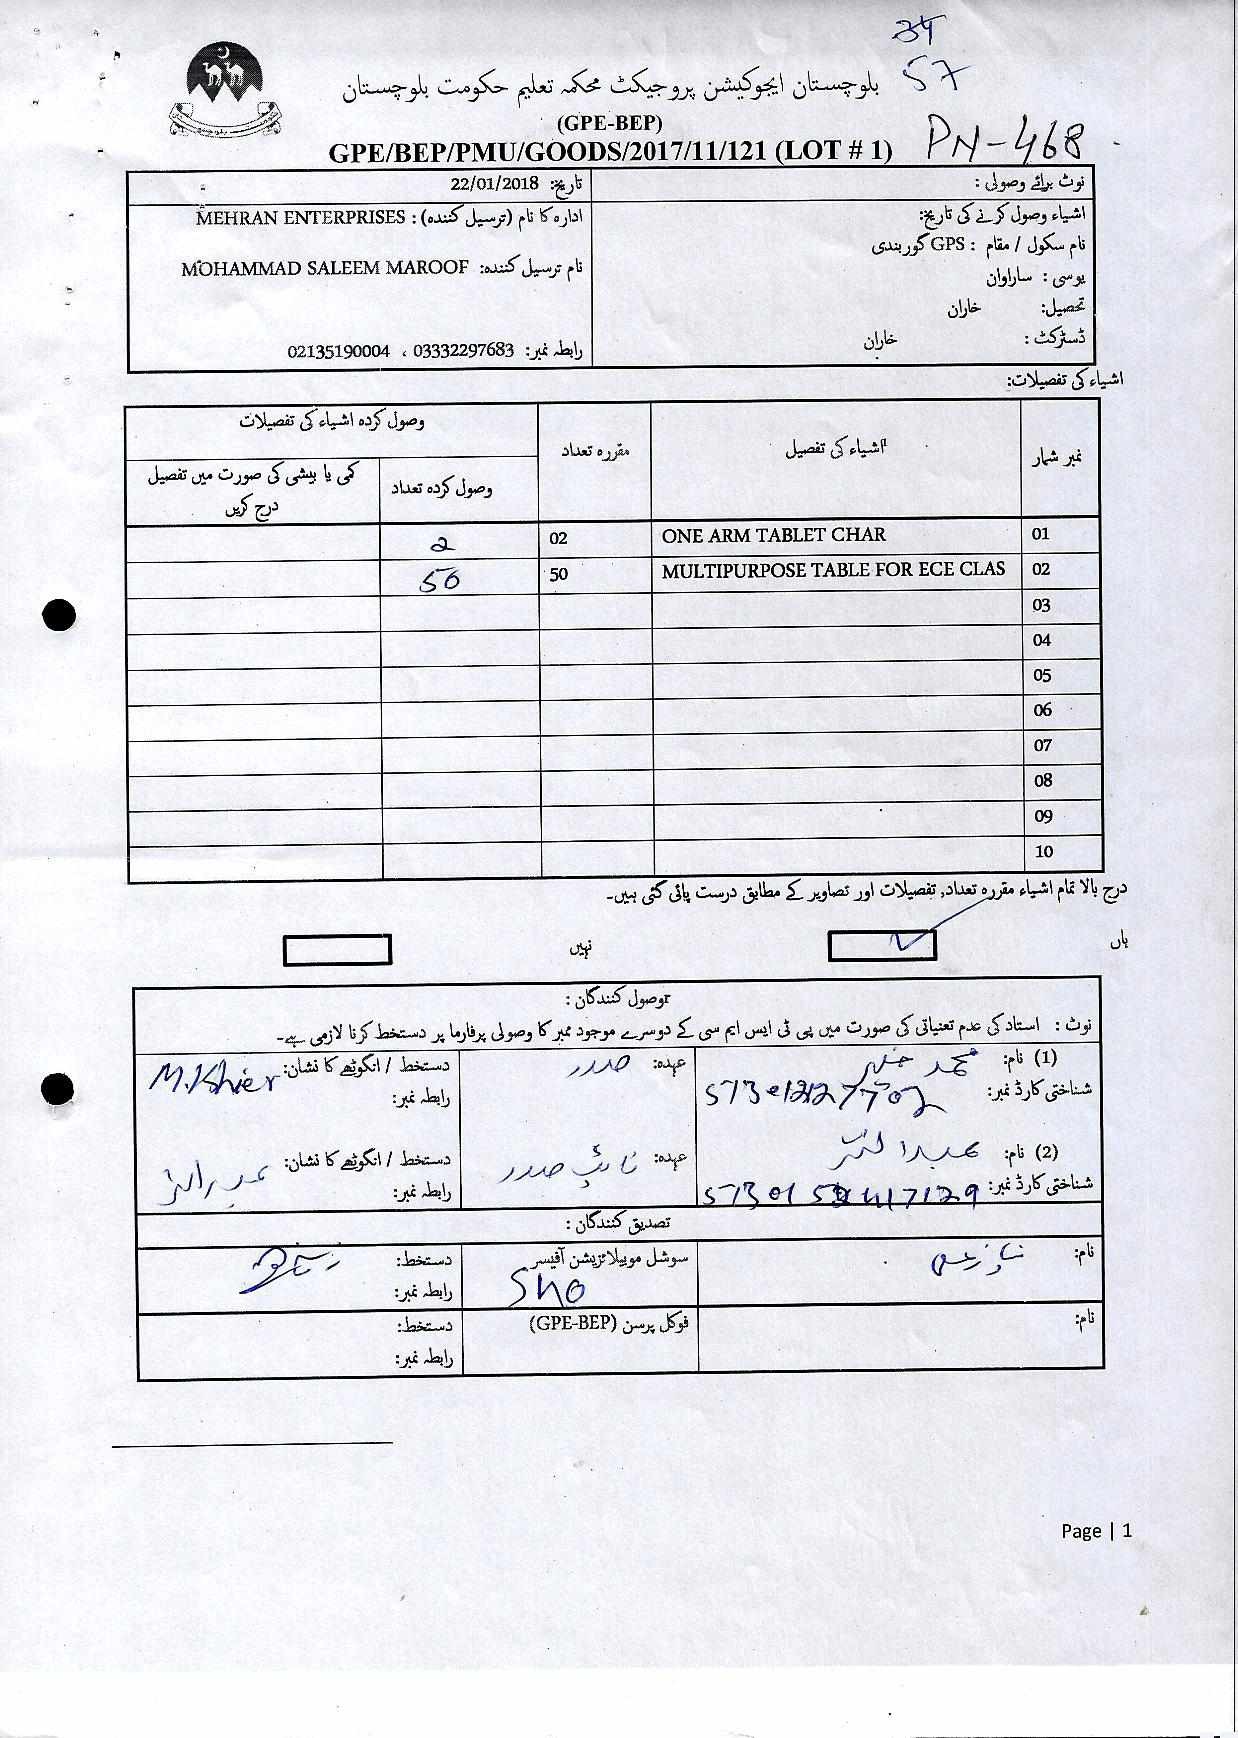 57
بلوچستان ایجوکیشن پروجیکٹ محکمہ تعلیم حکومت بلوچستان
(GPE-BEP)
GPE/BEP/PMU/GOODS/2017/11/121 (LOT # 1) PN-468
نوٹ برائے وصولی :
تاریخ: 22/01/2018
اشیاء وصول کرنے کی تاریخ:
نام سکول / مقام : GPS گوربندی
یوسی : ساراوان
تحصیل: خاران
ڈسٹرکٹ : خاران
ادارہ کا نام (ترسیل کنندہ) : MEHRAN ENTERPRISES
نام ترسیل کنندہ: MOHAMMAD SALEEM MAROOF
رابطہ نمبر: 03332297683 ، 02135190004
اشیاء کی تفصیلات:
نمبر شمار اشیاء کی تفصیل مقررہ تعداد وصول کردہ اشیاء کی تفصیلات
وصول کردہ تعداد کمی یا بیشی کی صورت میں تفصیل درج کریں
01 ONE ARM TABLET CHAR 02 2
02 MULTIPURPOSE TABLE FOR ECE CLAS 50 50
03
04
05
06
07
08
09
10
درج بالا تمام اشیاء مقررہ تعداد, تفصیلات اور تصاویر کے مطابق درست پائی گئی ہیں۔
ہاں نہیں
وصول کنندگان :
نوٹ : استاد کی عدم تعیناتی کی صورت میں پی ٹی ایس ایم سی کے دوسرے موجود ممبر کا وصولی پرفارما پر دستخط کرنا لازمی ہے۔
(1) نام: محمد عہدہ: صدر دستخط / انگوٹھے کا نشان: M.Khier
شناختی کارڈ نمبر: رابطہ نمبر:
(2) نام: عہدہ: نائب صدر دستخط / انگوٹھے کا نشان:
شناختی کارڈ نمبر: رابطہ نمبر:
تصدیق کنندگان :
نام: سوشل موبیلائزیشن آفیسر دستخط:
SMO رابطہ نمبر:
نام: فوکل پرسن (GPE-BEP) دستخط:
رابطہ نمبر:
Page | 1